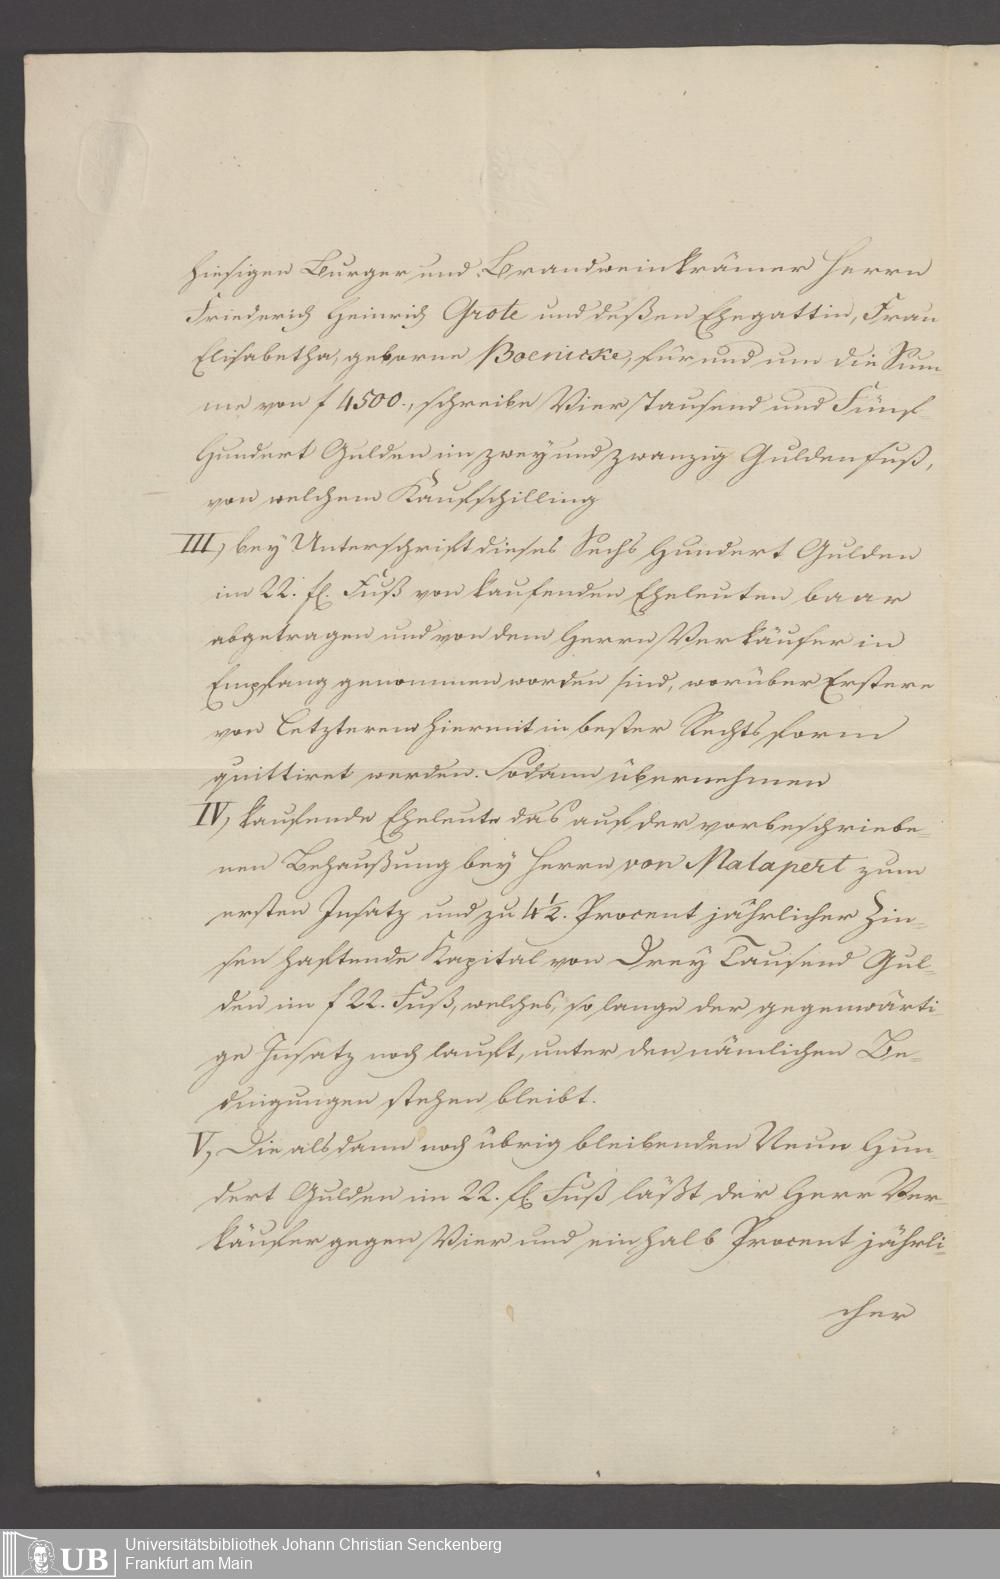 hiesigen Burger und Brandweinkrämer Herrn
Friederich Heinrich Grote und deßen Ehegattin, Frau
Elisabetha, geborne Boenicke, für und um die Sum-
me von f 4500., schreibe Vier Tausend und Fünf
Hundert Gulden im zwey und zwanzig Guldenfuß,
von welchem Kaufschilling
III, bey Unterschrift dieses Sechs Hundert Gulden
im 22. fl. Fuß von kaufenden Eheleuten baar
abgetragen und von dem Herrn Verkäufer in
Empfang genommen worden sind, worüber Erstere
von Letzterem hiermit in bester Rechtsform
quittiret werden. Sodann übernehmen
IV, kaufende Eheleute das auf der vorbeschriebe-
nen Behaußung bey Herrn von Malapert zum
ersten Insatz und zu 4½. Procent jährlicher Zin-
sen haftende Kapital von Drey Tausend Gul-
den im f 22. Fuß, welches, so lange der gegenwärti-
ge Insatz noch lauft, unter den nämlichen Be-
dingungen stehen bleibt.
V, Die alsdann noch übrig bleibenden Neun Hun-
dert Gulden im 22. fl. Fuß läßt der Herr Ver-
käufer gegen Vier und ein halb Procent jährli-
cher
UB
Universitätsbibliothek Johann Christian Senckenberg
Frankfurt am Main